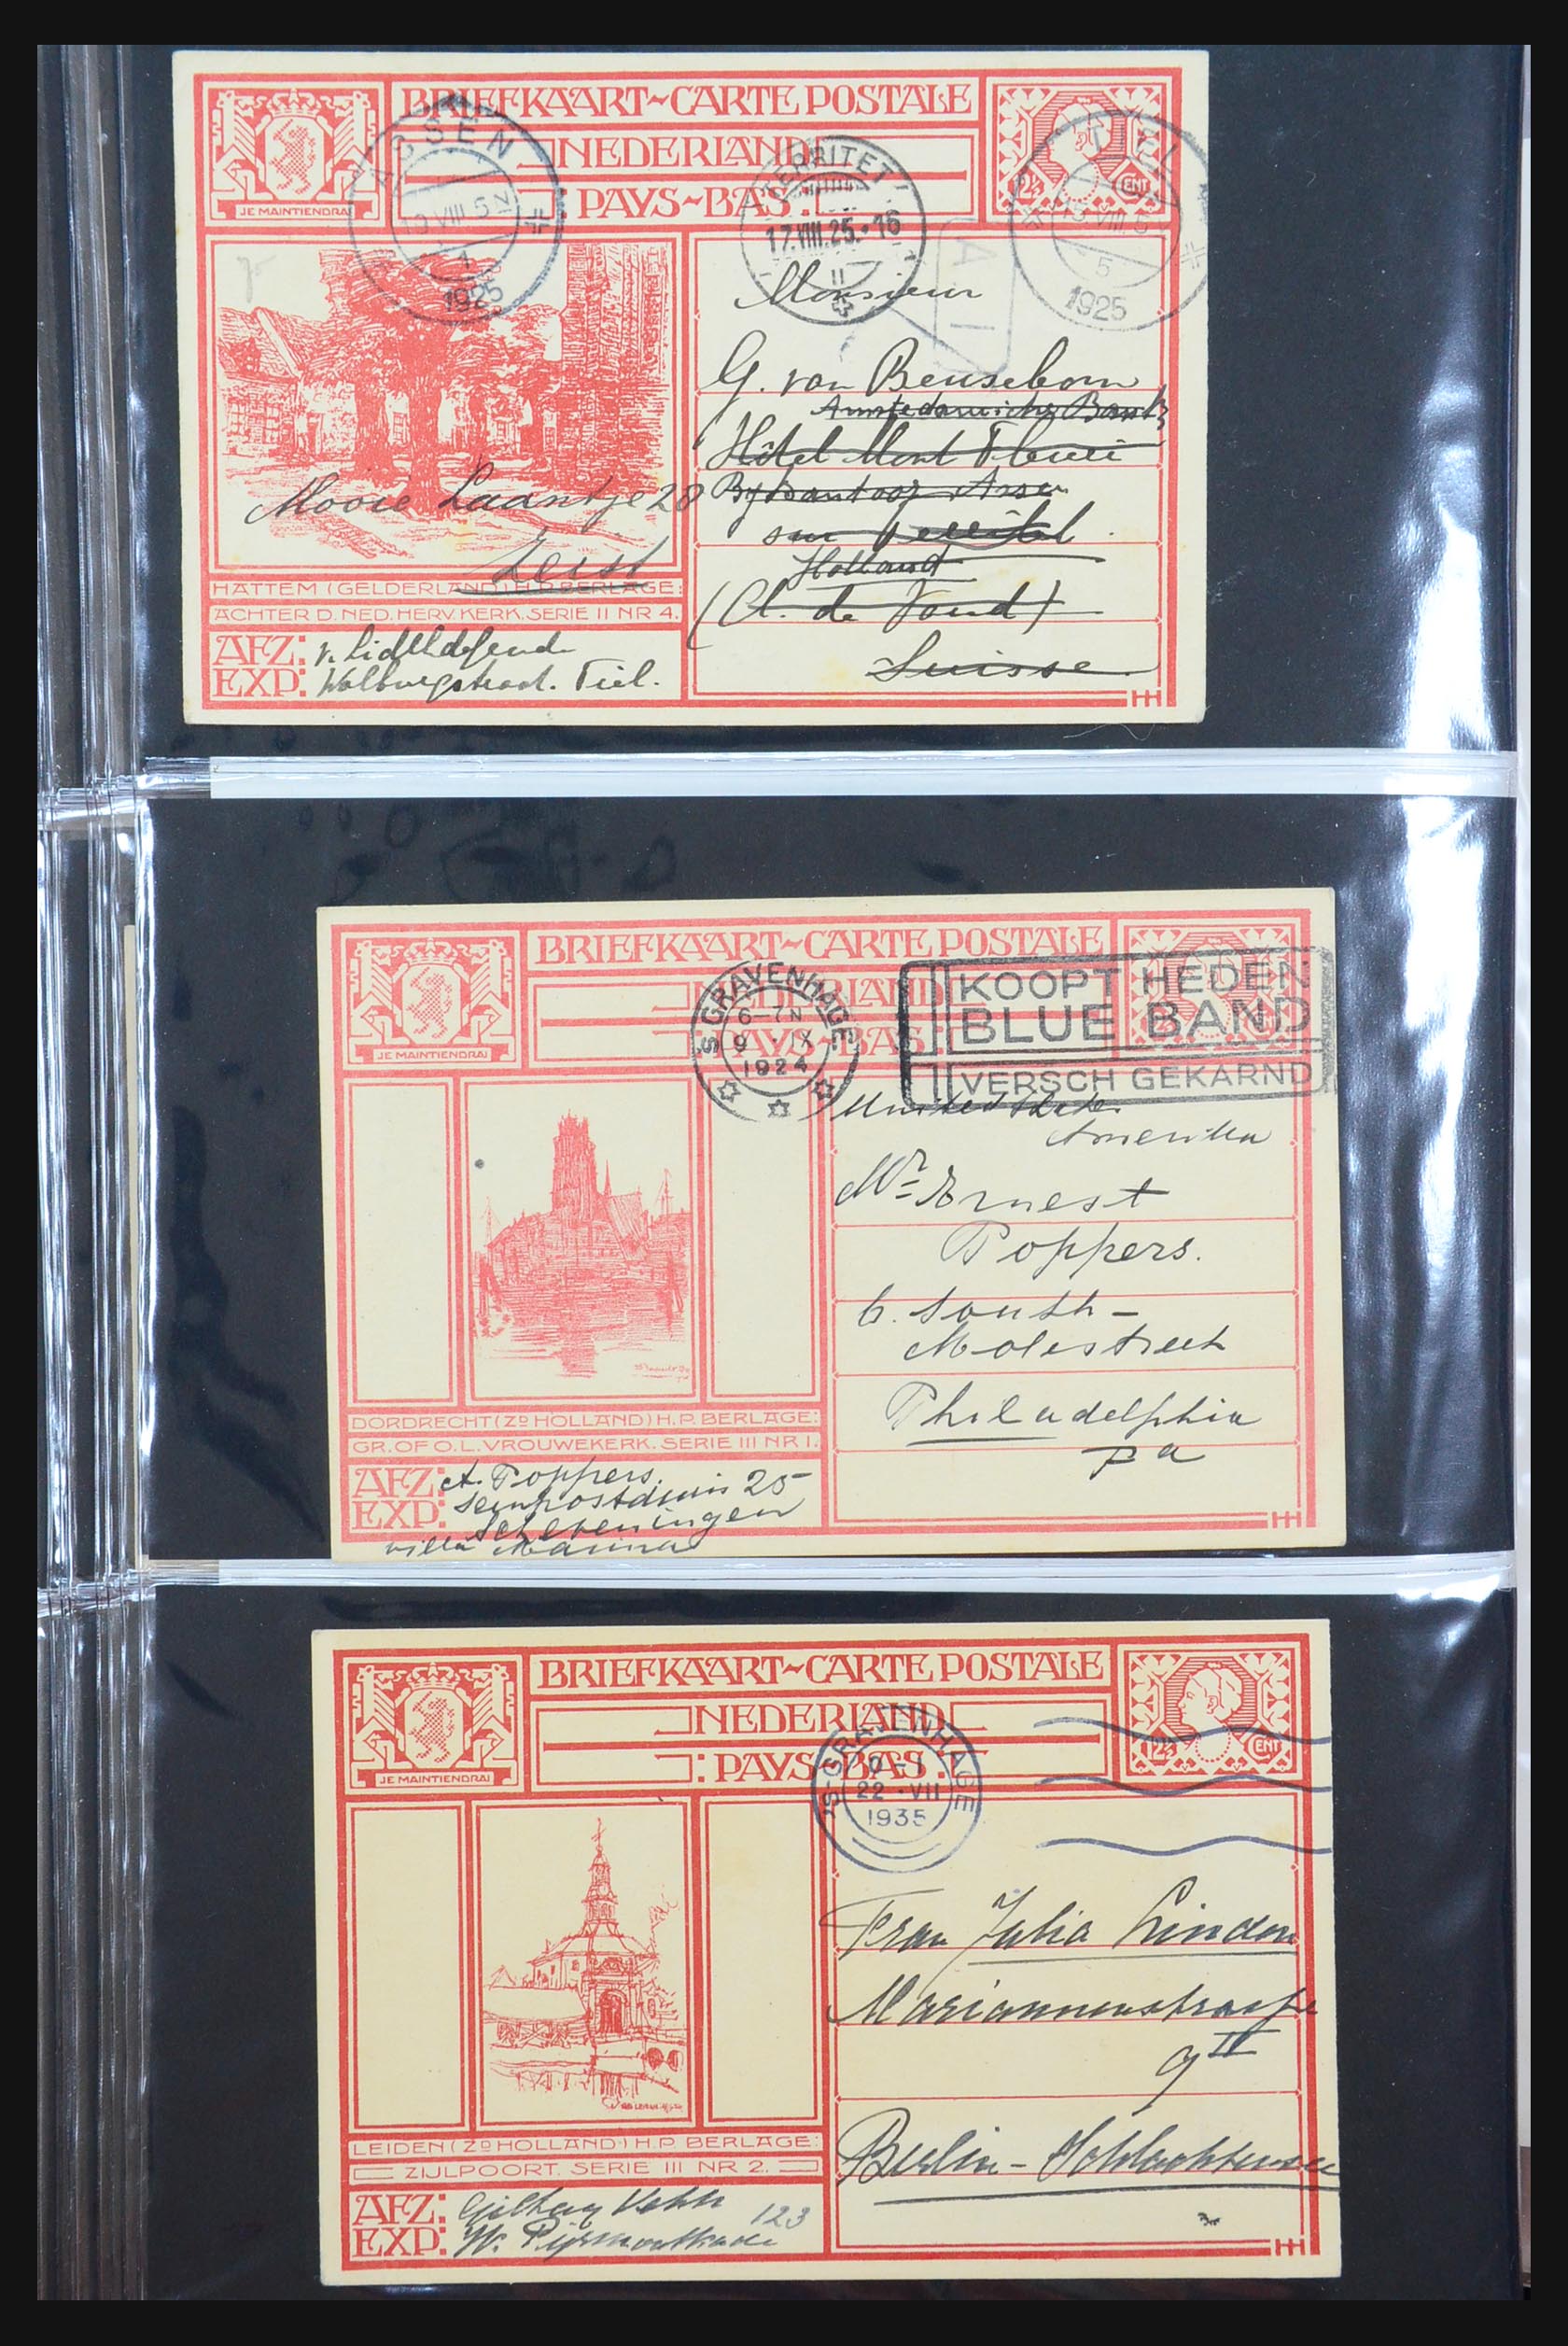 BRIEFKAART~CARTE POSTALE
NEDERLAND
PAYS~BAS
JE MAINTIENDRAI
12½ CENT
ASSEN
VIII 5
1925
TERRITET
17.VIII.25.-16
TIEL
VIII 5
1925
Monsieur
G. van Beusekom
Amsterdamsche Bank
Hôtel Mont Fleuri
Bijkantoor Assen
sur Territet
Holland
(Ct. de Vaud)
Suisse
Mooie Laantje 28
Zeist
HATTEM (GELDERLAND) H.P. BERLAGE:
ACHTER D. NED. HERV. KERK. SERIE II NR 4.
AFZ:
EXP:
Walburgstraat. Tiel.
HH
BRIEFKAART~CARTE POSTALE
NEDERLAND
PAYS~BAS:
JE MAINTIENDRAI
'S GRAVENHAGE
6-7N
9 · IX
1924
KOOPT HEDEN
BLUE BAND
VERSCH GEKARND
United States
Amerika
Mr Ernest
Poppers.
6. South-
Molestreet
Philadelphia
Pa
DORDRECHT (ZD HOLLAND) H.P. BERLAGE:
GR. OF O.L. VROUWEKERK. SERIE III NR 1.
AFZ: A. Poppers.
EXP: Seinpostduin 25
Scheveningen
villa Marina
HH
BRIEFKAART~CARTE POSTALE
NEDERLAND
:PAYS~BAS:
JE MAINTIENDRAI
12½ CENT
'S-GRAVENHAGE
22 · VII
1935
Frau Julia Lindon
Mariannenstrasse
9 II
Berlin - Schlachtensee
LEIDEN (ZD HOLLAND) H.P. BERLAGE:
ZIJLPOORT. SERIE III NR 2.
AFZ:
EXP:
123
HH